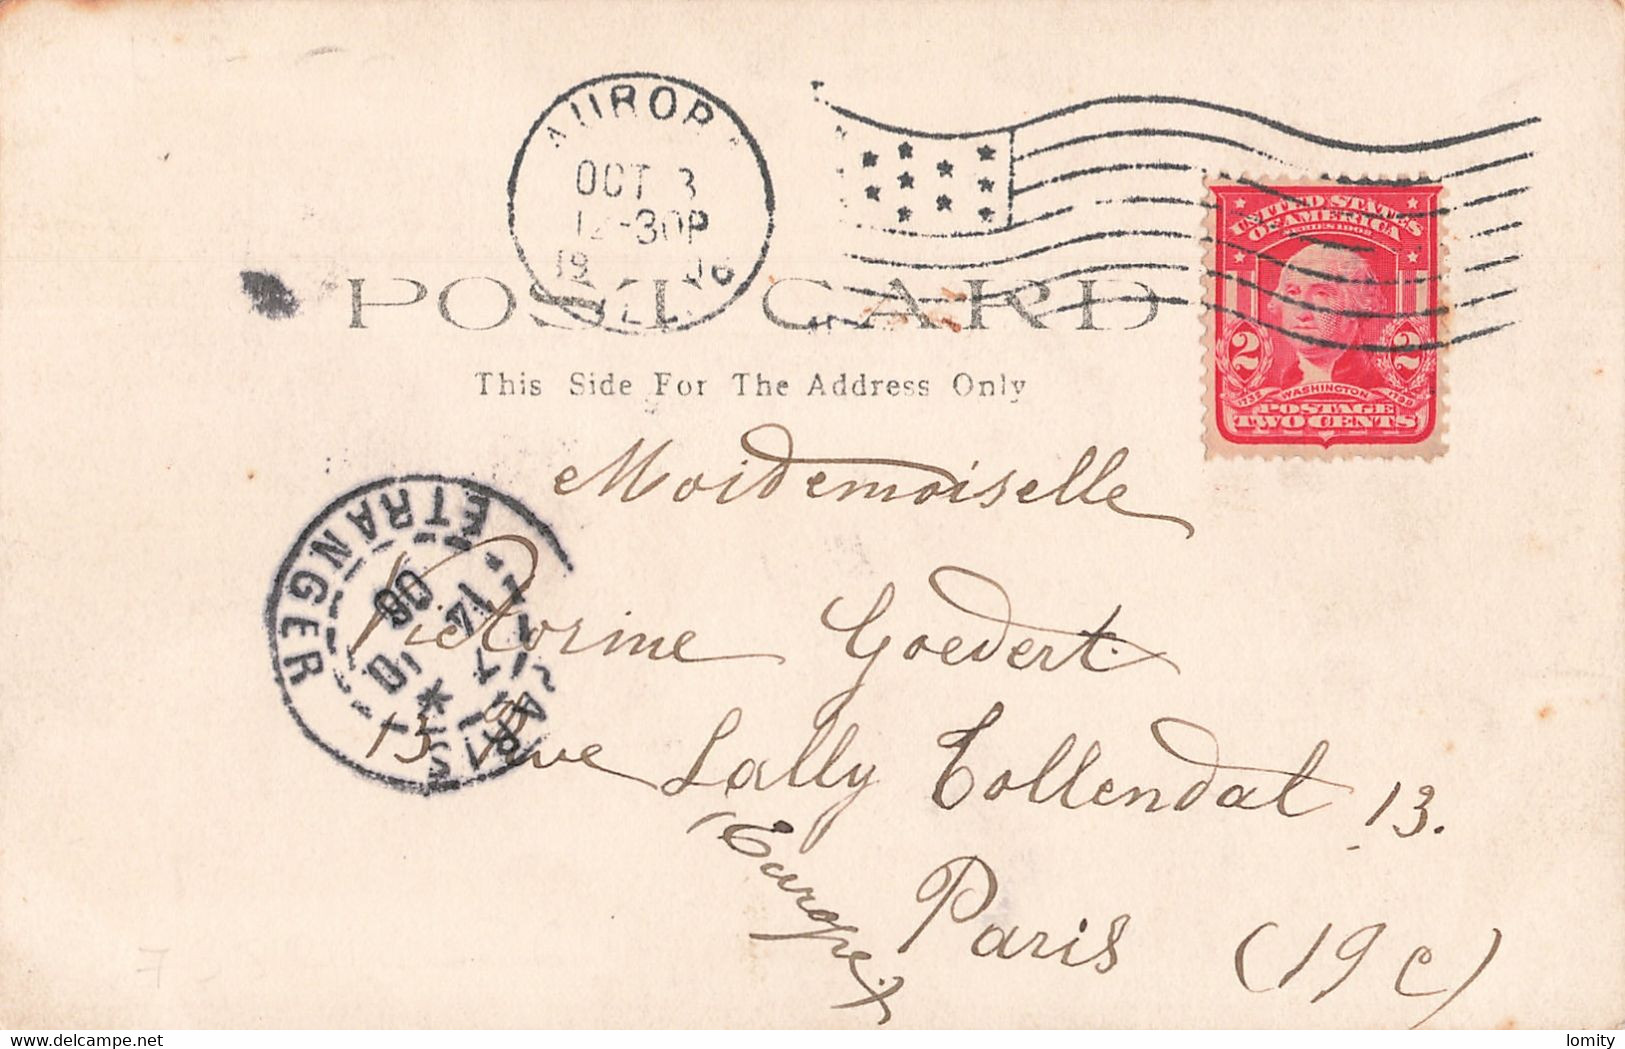 AURORA
OCT 3
12-30P
19 06
ILL.
UNITED STATES
OF AMERICA
SERIES 1902
2 2
1732 WASHINGTON 1799
POSTAGE
TWO CENTS
POST CARD
This Side For The Address Only
Moidemoiselle
PARIS ETRANGER
14
06
Victorine Goedert.
13 Rue Lally Tollendal 13.
(Europe)
Paris (19 e)
delcampe.net
lomity